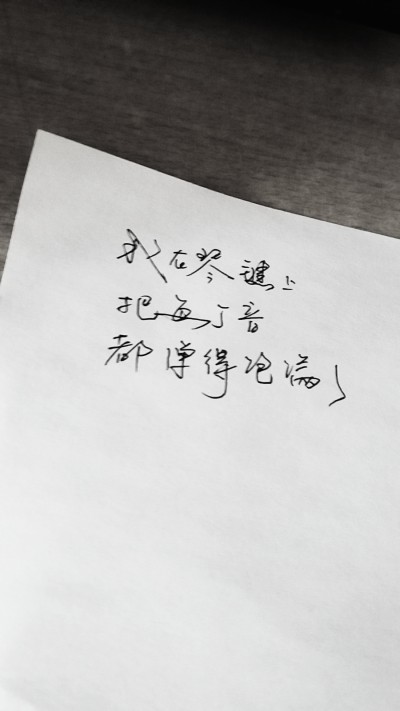 我在琴键上
把每个音
都弹得饱满